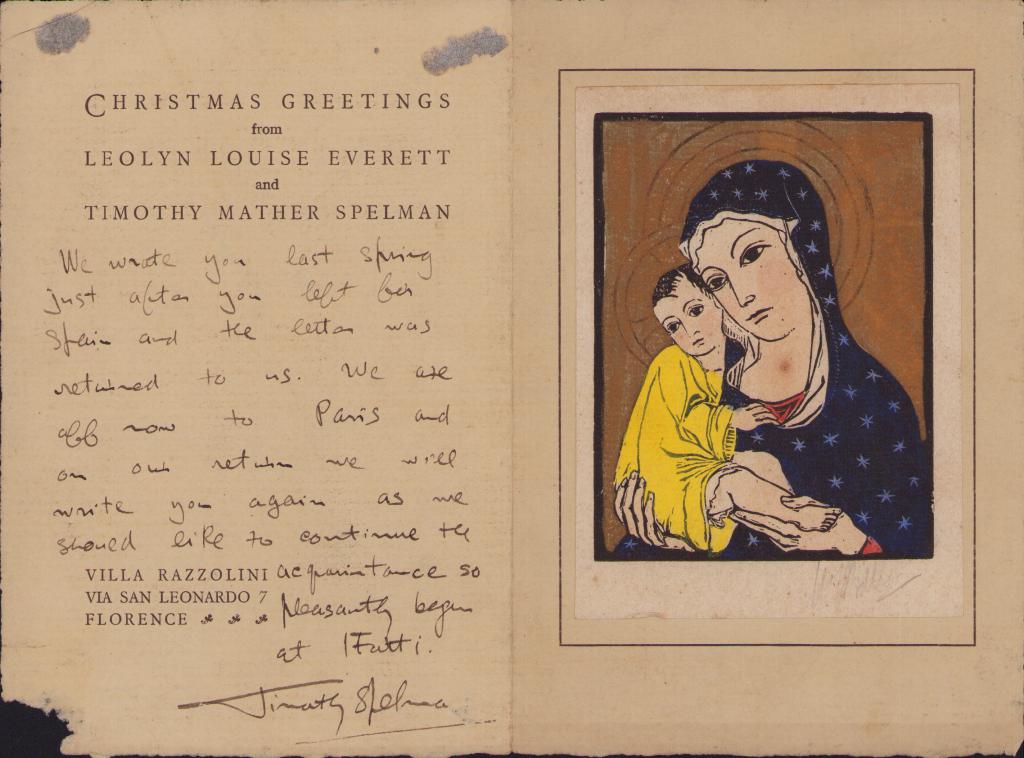 CHRISTMAS GREETINGS
from
LEOLYN LOUISE EVERETT
and
TIMOTHY MATHER SPELMAN
We wrote you last spring
just after you left for
Spain and the letter was
returned to us. We are
off now to Paris and
on our return we will
write you again as we
should like to continue the
acquaintance so
pleasantly begun
at I Tatti.
Timothy Spelman
VILLA RAZZOLINI
VIA SAN LEONARDO 7
FLORENCE